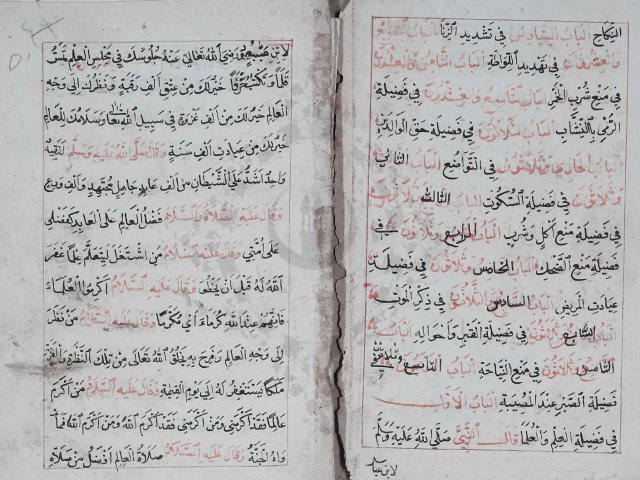 النكاح الباب السادس في تشديد الزنا الباب السابع
والعشرون في تهديد اللواطة الباب الثامن والعشرون
في منع شرب الخمر الباب التاسع والعشرون في فضيلة
الرمى بالنشاب الباب الثلاثون في فضيلة حق الوالدين
الباب الحادى وثلاثون في التواضع الباب الثاني
وثلاثون في فضيلة السكوت الثالث وثلاثون
في فضيلة منع اكل وشرب الباب الرابع وثلاثون في
فضيلة منع الضحك الباب الخامس وثلاثون في فضيلة
عيادت المريض الباب السادس الثلاثون في ذكر الموت
الباب السابع وثلاثون في فضيلة القبر واحواله الباب
الثامن وثلاثون في منع النياحة الباب التاسع وثلاثون
فضيلة الصبر عند المصيبة الباب الاول
في فضيلة العلم والعلما قال النبي صلى الله عليه وسلم
لابن عباس
لابن رضي الله تعالى عنه جلوسك في مجلس العلم
قلما وتكتب حرفا خير لك من عتق الف رقبة ونظرك الى وجه
العالم خير لك من الف غزوة في سبيل الله تعا وسلامك للعالم
خير لك من عبادت الف سنة وقال صلى الله عليه وسلم لفقيه
واحد اشد على الشيطان من الف عابد جاهل مجتهد والف ورع
وقال عليه الصلاة والسلام فضل العالم على العابد كفضلى
على امتي وقال عليه السلام من اشتغل ليتعلم علما غفر
الله له قبل ان يخطى وقال عليه السلام اكرموا العلماء
فانهم عند الله كرماء اى مكرما وقال عليه السلام من نظر
الى وجه العالم وفرح به يخلق الله تعالى من تلك النظرة والفرح
ملكا يستغفر له الى يوم القيمة وقال عليه السلام من اكرم
عالما فقد اكرمنى ومن اكرمنى فقد اكرم الله ومن اكرم الله فما
واه الجنة وقال عليه السلام صلاة العالم افضل من صلاة